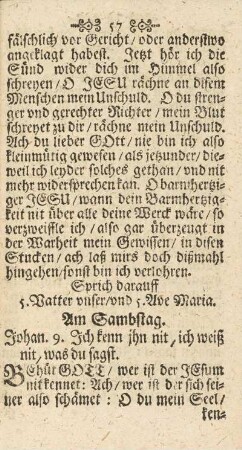 57
fälschlich vor Gericht / oder anderstwo
angeklagt habest. Jetzt hör ich die
Sünd wider dich im Himmel also
schreyen / O JESU rächne an disem
Menschen mein Unschuld. O du stren-
ger vnd gerechter Richter / mein Blut
schreyet zu dir / rächne mein Unschuld.
Ach du lieber GOtt / nie bin ich also
kleinmütig gewesen / als jetzunder / die-
weil ich leyder solches gethan / vnd nit
mehr widersprechen kan. O barmhertzi-
ger JESU / wann dein Barmhertzig-
keit nit über alle deine Werck wäre / so
verzweiffle ich / also gar überzeugt in
der Warheit mein Gewissen / in disen
Stucken / ach laß mirs doch dißmahl
hingehen / sonst bin ich verlohren.
Sprich darauff
5. Vatter vnser / vnd 5. Ave Maria.
Am Sambstag.
Johan. 9. Ich kenn jhn nit, ich weiß
nit, was du sagst.
BEhüt GOTT / wer ist der JEsum
nit kennet: Ach / wer ist der sich sei-
ner also schämet : O du mein Seel /
ken-